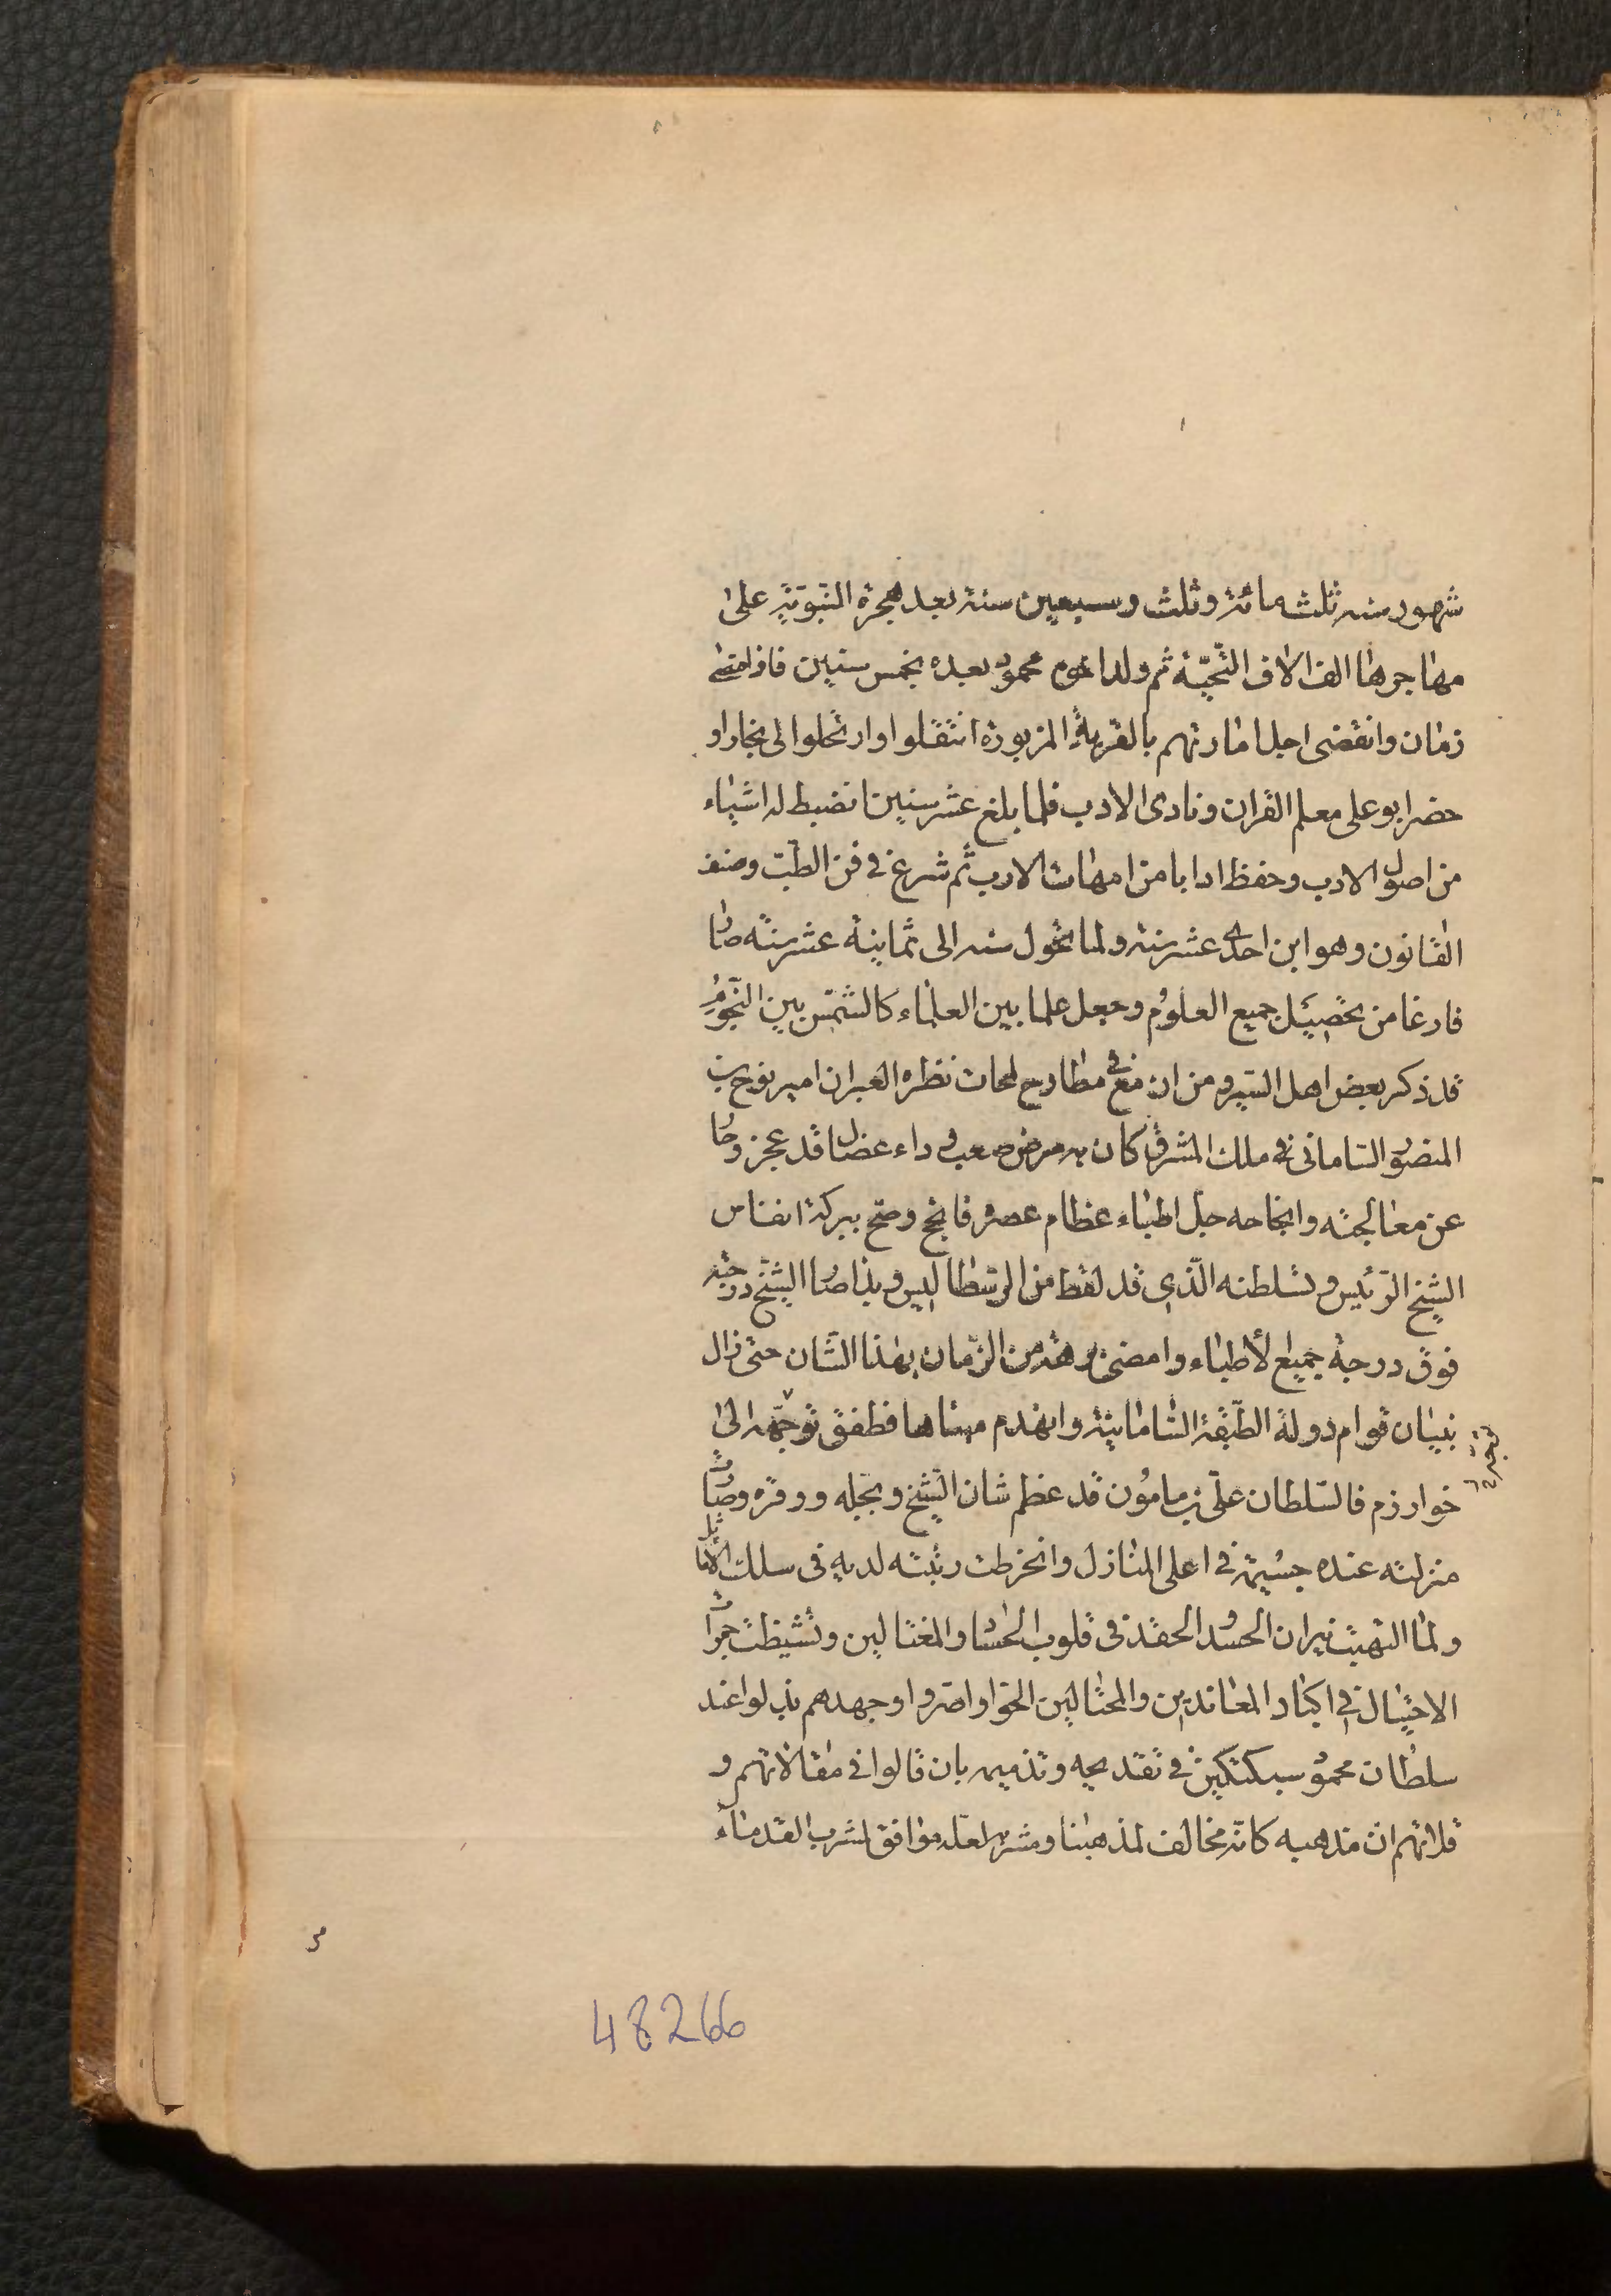 شهور سنه ثلث مائة وثلث وسبعين سنة بعد هجرة النبوّية على
مهاجرها الف الاف التّحيّة ثم ولد اخوه محمود بعده بخمس سنين فاذا مضى
زمان وانقضى اجل امارتهم بالقرية المزبورة انتقلوا وارتحلوا الى بخارا و
حضر ابو على معلم القران ونادى الادب فلما بلغ عشر سنين انضبط له اشياء
من اصول الادب وحفظ ادابا من امهات الادب ثم شرع فى فن الطّب وصنف
القانون وهو ابن احدى عشر سنة ولما تحول سنه الى ثمانية عشر سنه صار
فارغا من تحصيل جميع العلوم وجعل علما بين العلماء كالشمس بين النّجوم
قد ذكر بعض اهل السّير و من ان مع فى مطارح لمحات نظره العبر ان امير نوح بن
المنصور السّامانى فى ملك المشرق كان به مرض صعب و داء عضال قد عجز وحا
عن معالجته وانجاحه جل اطباء عظام عصره فانجح وصح ببركة انفاس
الشيخ الرّئيس و تسلطنه الّذى قد لقط من ارسطاليس و بذا صار الشيخ درجته
فوق درجة جميع الأطباء وامضى برهة من الزّمان بهذا الشّان حتى زال
بنيان قوام دولة الطّبقة السّامانيّة وانهدم مبناها فطفق توجّهه الى
خوارزم فالسّلطان علىّ بن مامون قد عظم شان الشّيخ وبجّله ووقره وصارت
منزلته عنده جسيمة فى اعلى المنازل وانخرطت رتبته لديه فى سلك الاماثل
ولما التهبت نيران الحسد و الحقد فى قلوب الحسّاد والمغتالين وتشيظت جمرات
الاحتيال فى اكباد المعاندين والمحتالين الحوا واصروا وجهدهم بذلوا عند
سلطان محمود سبكتكين فى تقديحه وتذميمه بان قالوا فى مقالاتهم و
قلاتهم ان مذهبه كانّه مخالف لمذهبنا ومشربه لعلّه موافق لمشرب القدماء
48266